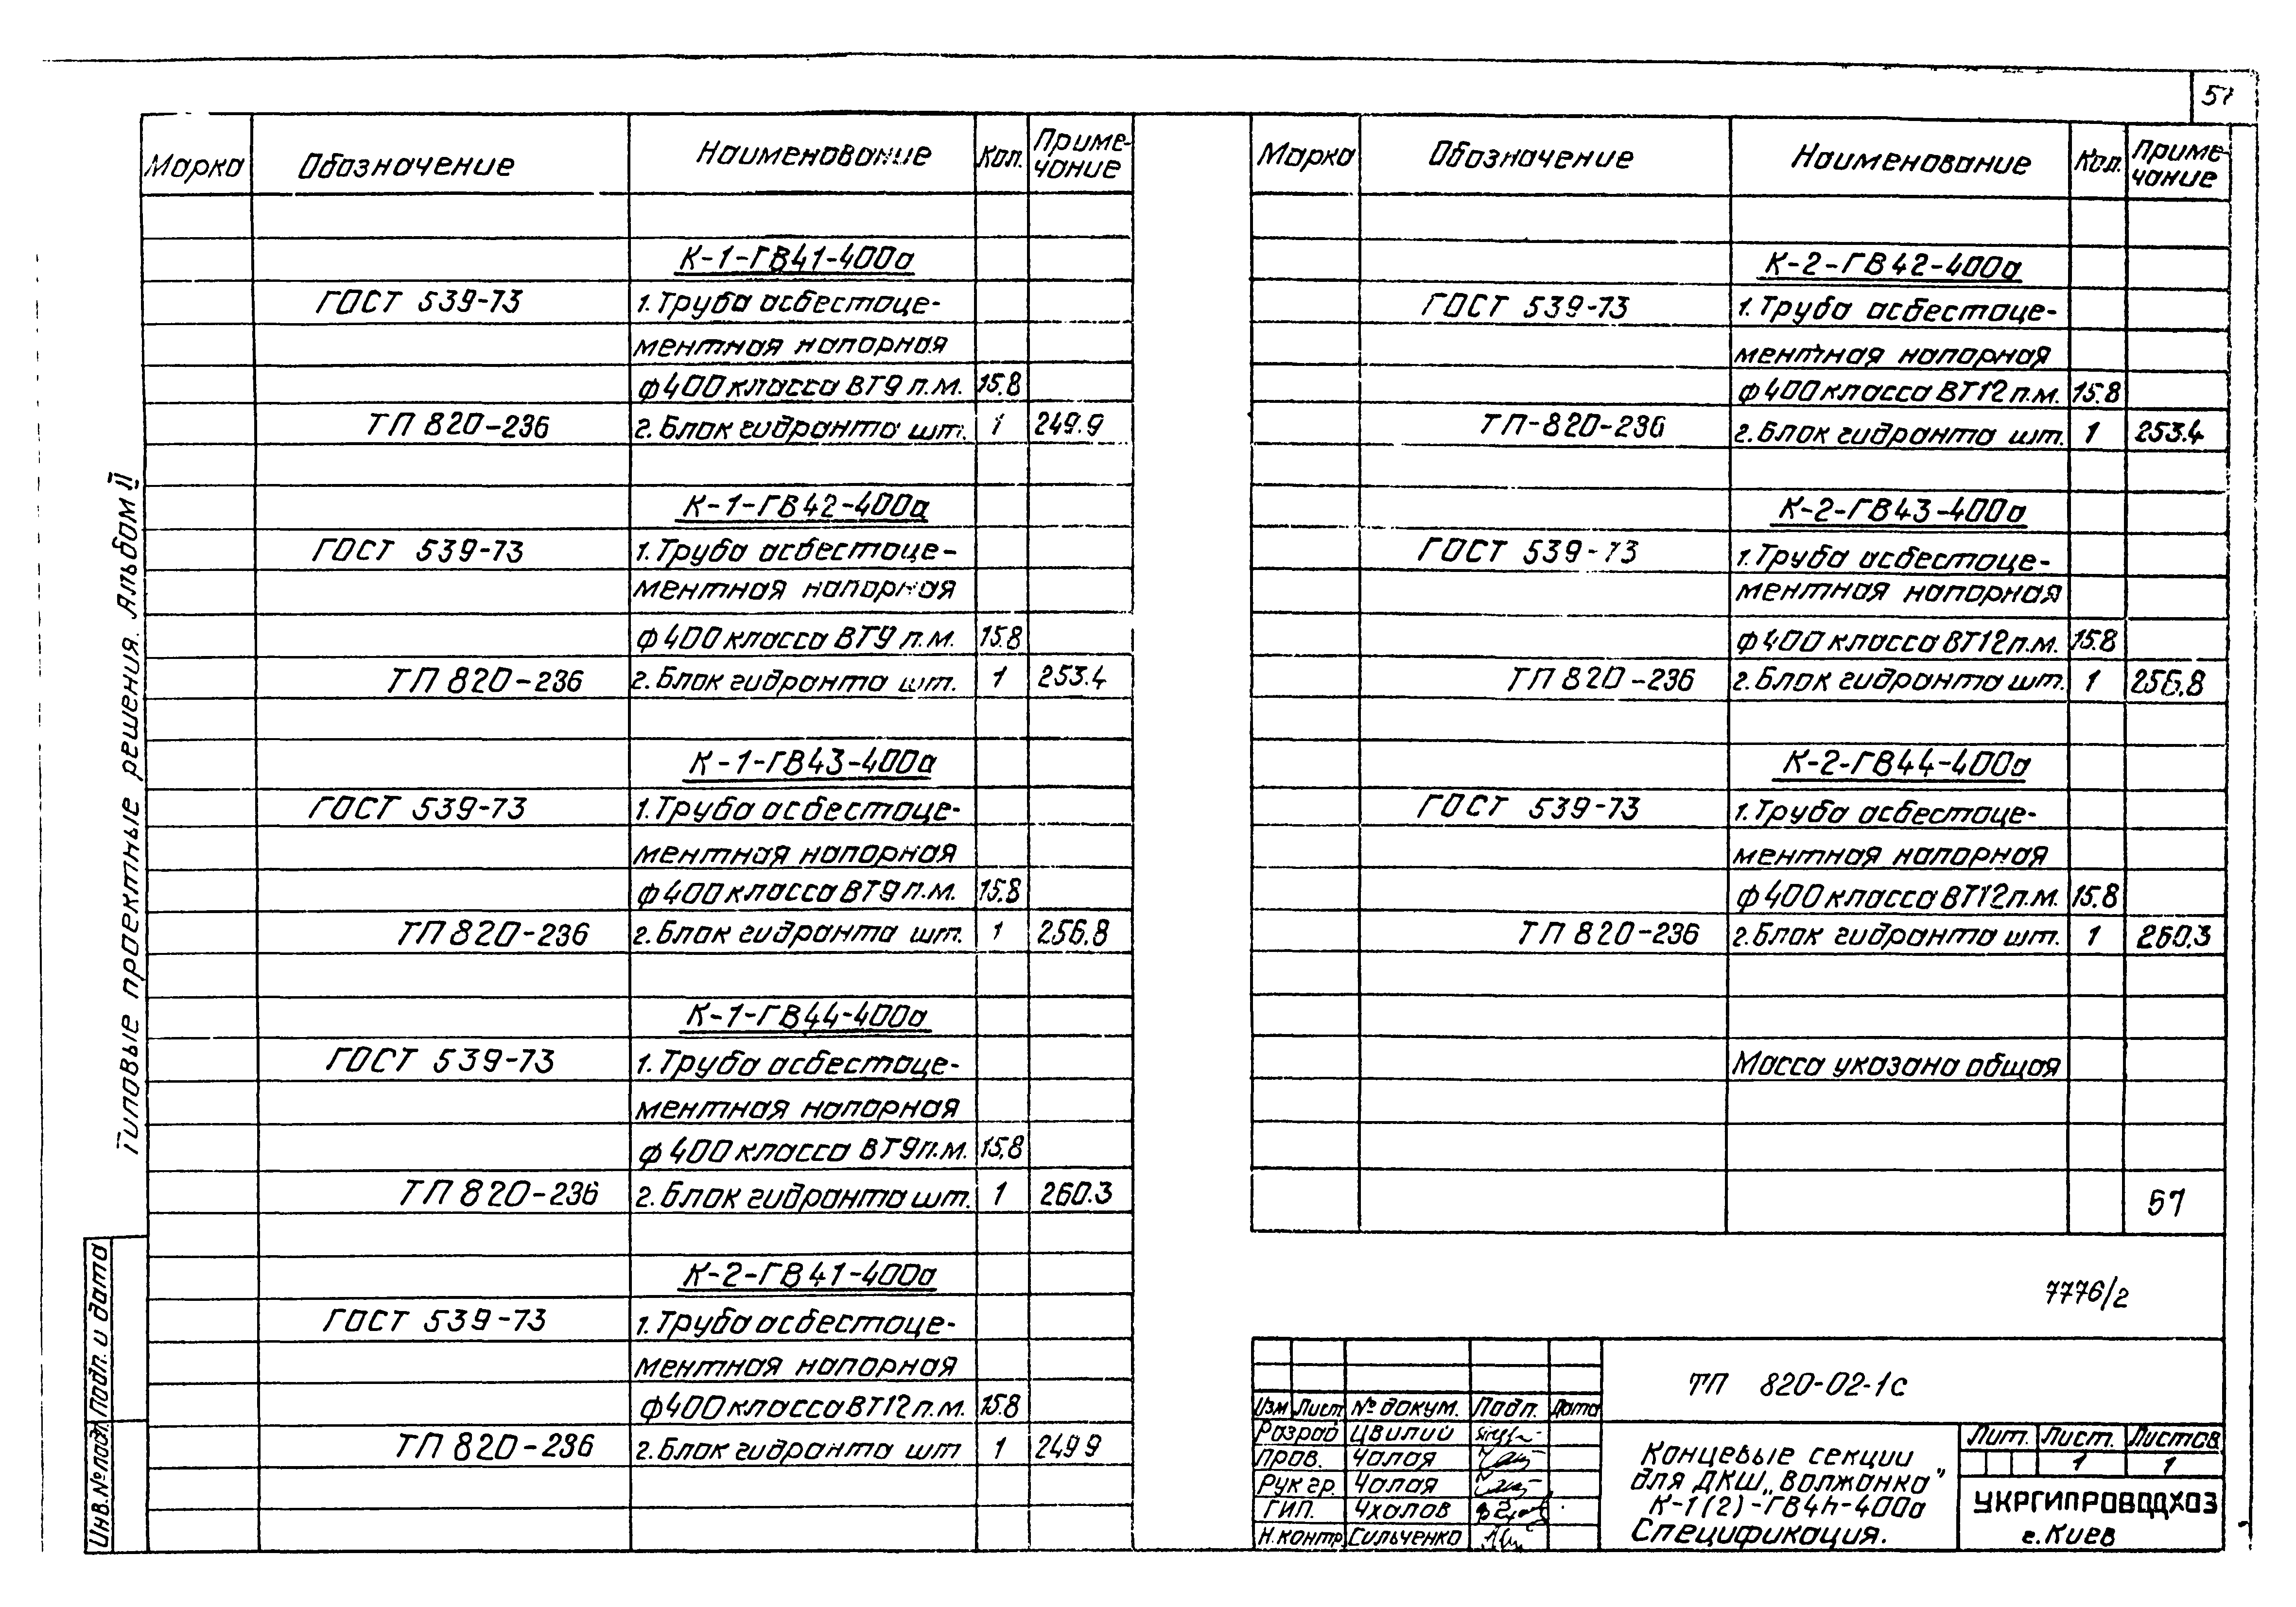 57
Марка Обозначение Наименование Кол. Приме-
чание
К-1-ГВ41-400а
ГОСТ 539-73 1. Труба асбестоце-
ментная напорная
ф400 класса ВТ9 п.м. 15.8
ТП 820-236 2. Блок гидранта шт. 1 249.9
К-1-ГВ42-400а
ГОСТ 539-73 1. Труба асбестоце-
ментная напорная
ф400 класса ВТ9 п.м. 15.8
ТП 820-236 2. Блок гидранта шт. 1 253.4
К-1-ГВ43-400а
ГОСТ 539-73 1. Труба асбестоце-
ментная напорная
ф400 класса ВТ9 п.м. 15.8
ТП 820-236 2. Блок гидранта шт. 1 256.8
К-1-ГВ44-400а
ГОСТ 539-73 1. Труба асбестоце-
ментная напорная
ф400 класса ВТ9 п.м. 15.8
ТП 820-236 2. Блок гидранта шт. 1 260.3
К-2-ГВ41-400а
ГОСТ 539-73 1. Труба асбестоце-
ментная напорная
ф400 класса ВТ12 п.м. 15.8
ТП 820-236 2. Блок гидранта шт 1 249 9
Марка Обозначение Наименование Кол. Приме-
чание
К-2-ГВ42-400а
ГОСТ 539-73 1. Труба асбестоце-
ментная напорная
ф400 класса ВТ12 п.м. 15.8
ТП-820-236 2. Блок гидранта шт. 1 253.4
К-2-ГВ43-400а
ГОСТ 539-73 1. Труба асбестоце-
ментная напорная
ф400 класса ВТ12 п.м. 15.8
ТП 820-236 2. Блок гидранта шт. 1 256.8
К-2-ГВ44-400а
ГОСТ 539-73 1. Труба асбестоце-
ментная напорная
ф400 класса ВТ12 п.м. 15.8
ТП 820-236 2. Блок гидранта шт. 1 260.3
Масса указана общая
57
7776/2
ТП 820-02-1с
Изм Лист № докум. Подп. Дата
Разраб Цвилий
Пров. Чалая
Рук гр. Чалая
ГИП. Чхалов
Н.контр. Сильченко
Концевые секции
для ДКШ „Волжанка"
К-1(2)-ГВ4h-400а
Спецификация.
Лит. Лист. Листов
1 1
УКРГИПРОВОДХОЗ
г. Киев
Типовые проектные решения. Альбом II
Инв.№подл. Подп. и дата